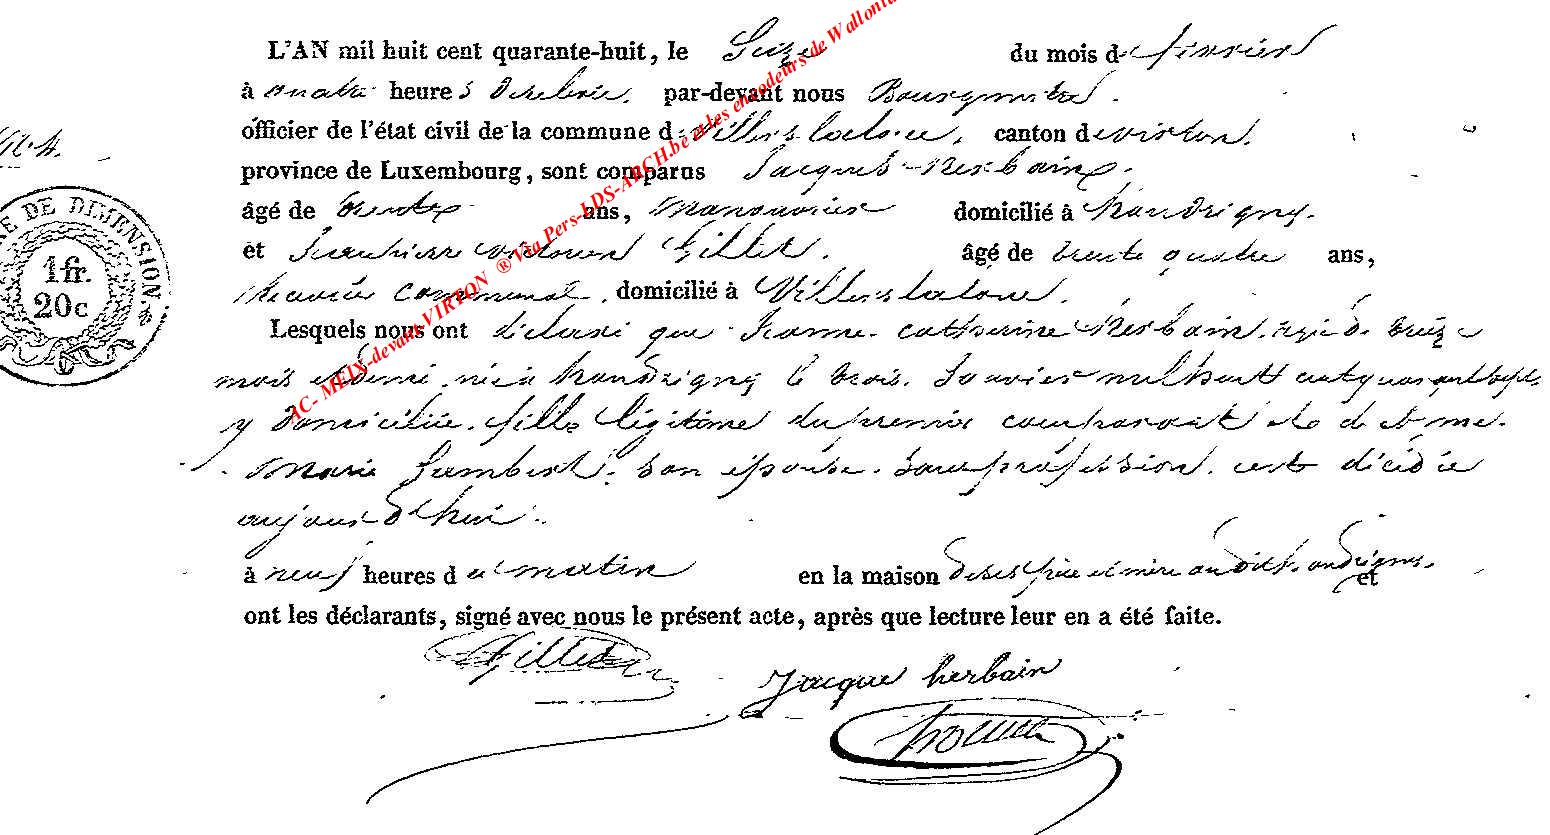 L'AN mil huit cent quarante-huit, le Seize du mois de février
à quatre heures de relevée, par-devant nous Bourgmestre
officier de l'état civil de la commune de Villers latour, canton de virton.
province de Luxembourg, sont comparus Jacques herbain,
âgé de trente ans, manouvrier domicilié à houdrigny.
et Jean pierre Gillet. âgé de trente quatre ans,
communal, domicilié à Villers latour.
Lesquels nous ont déclaré que Jeanne catherine herbain, agée de treize
mois et demi, née à houdrigny le trois Janvier mil huit cent quarante sept
y domiciliée, fille légitime du premier comparant et de
Marie Lambert, son épouse, sans profession, est décédée
aujourd'hui
à neuf heures du matin en la maison de ses père et mère audit houdrigny et
ont les déclarants, signé avec nous le présent acte, après que lecture leur en a été faite.
Gillet
Jacque herbain
RE DE DIMENSION.
1fr.
20c
AC- MEIX-devant-VIRTON ® Via Pers-LDS-ARCH.be et les encodeurs de Wallonie